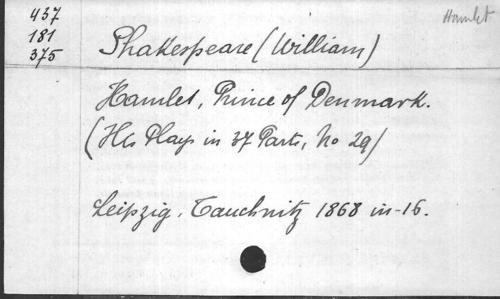 437
181
375
Hamlet
Shakespeare (William)
Hamlet, Prince of Denmark.
(His Plays in 37 Parts, No 29)
Leipzig. Tauchnitz 1868 in-16.